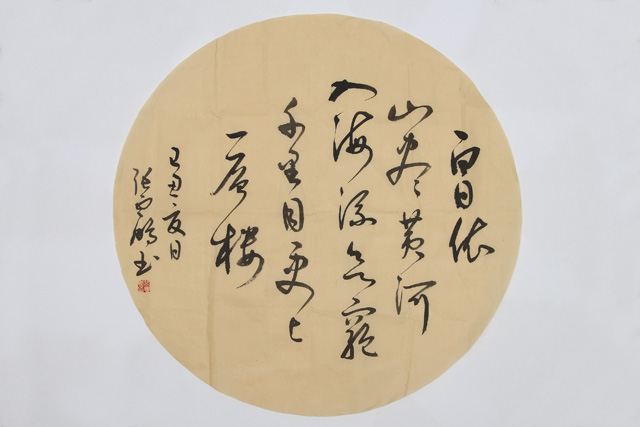 白日依
山尽黄河
入海流欲窮
千里目更上
一层楼
己丑夏日
张云鹏书